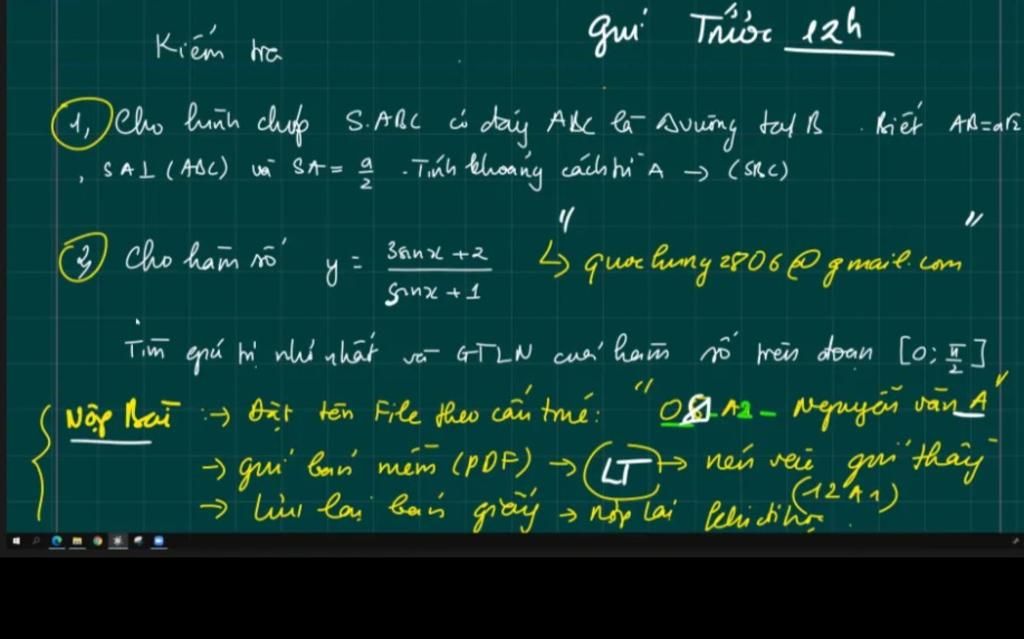 Kiểm tra
gửi Trước 12h
1, Cho hình chóp S.ABC có đáy ABC là Δvuông tại B. Biết AB=a√2
, SA⊥(ABC) và SA = a/2. Tính khoảng cách từ A → (SBC)
2, Cho hàm số y = (3sinx+2)/(sinx+1) ↳ "quochung2806@gmail.com"
Tìm giá trị nhỏ nhất và GTLN của hàm số trên đoạn [0; π/2]
Nộp Bài :→ Đặt tên File theo cấu trúc: "08 A2 - Nguyễn văn A"
→ gửi bản mềm (PDF) → LT → gửi thầy
(12A1)
→ Lưu lại bản giấy → nộp lại khi đi học.